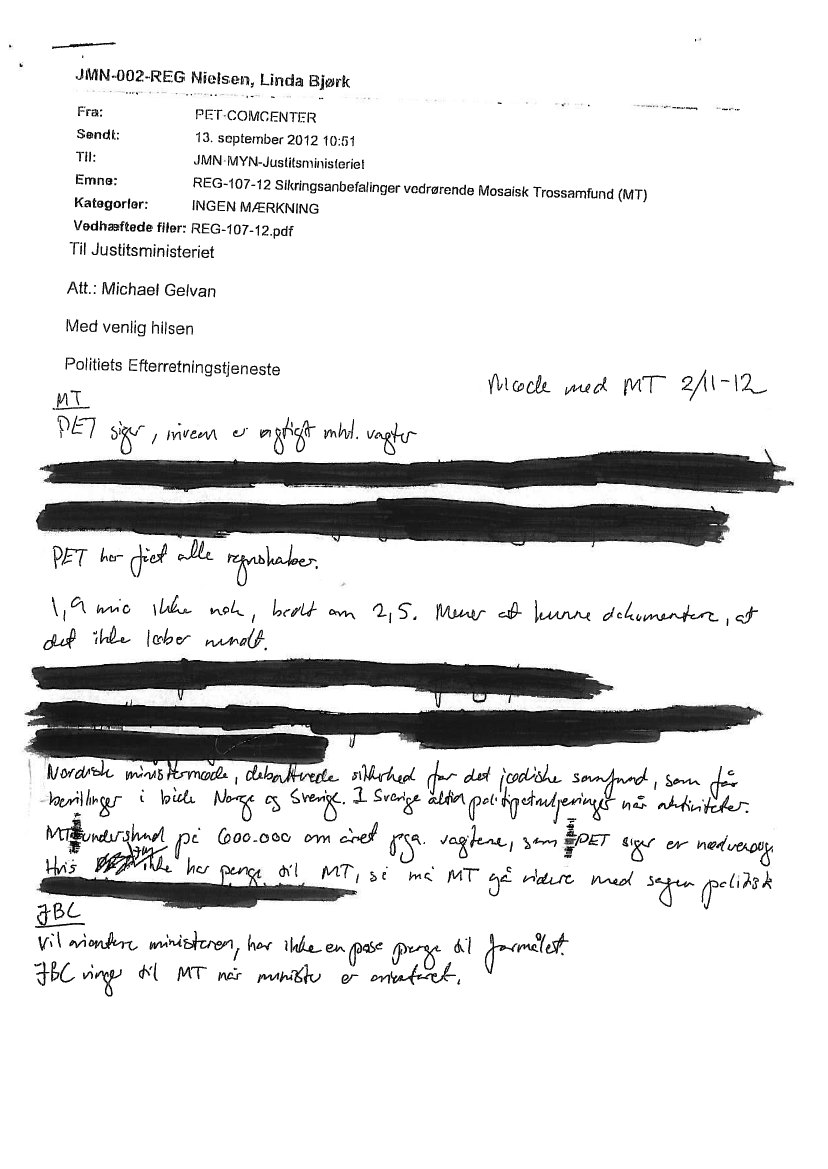 JMN-002-REG Nielsen, Linda Bjørk
Fra: PET-COMCENTER
Sendt: 13. september 2012 10:51
Til: JMN-MYN-Justitsministeriet
Emne: REG-107-12 Sikringsanbefalinger vedrørende Mosaisk Trossamfund (MT)
Kategorier: INGEN MÆRKNING
Vedhæftede filer: REG-107-12.pdf
Til Justitsministeriet
Att.: Michael Gelvan
Med venlig hilsen
Politiets Efterretningstjeneste
Møde med MT 2/11-12
MT
PET siger, niveau er vigtigt mht. vagter
PET har fået alle regnskaber.
1,9 mio ikke nok, bedt om 2,5. Mener at kunne dokumentere, at
det ikke løber rundt.
Nordisk ministermøde, debatterede sikkerhed for det jødiske samfund, som får
bevillinger i både Norge og Sverige. I Sverige altid politipatruljeringer når aktiviteter.
MT underskud på 600.000 om året pga. vagterne, som PET siger er nødvendig
Hvis JM ikke har penge til MT, så må MT gå videre med sagen politisk
JBC
Vil orientere ministeren, har ikke en pose penge til formålet.
JBC ringer til MT når minister er orienteret.